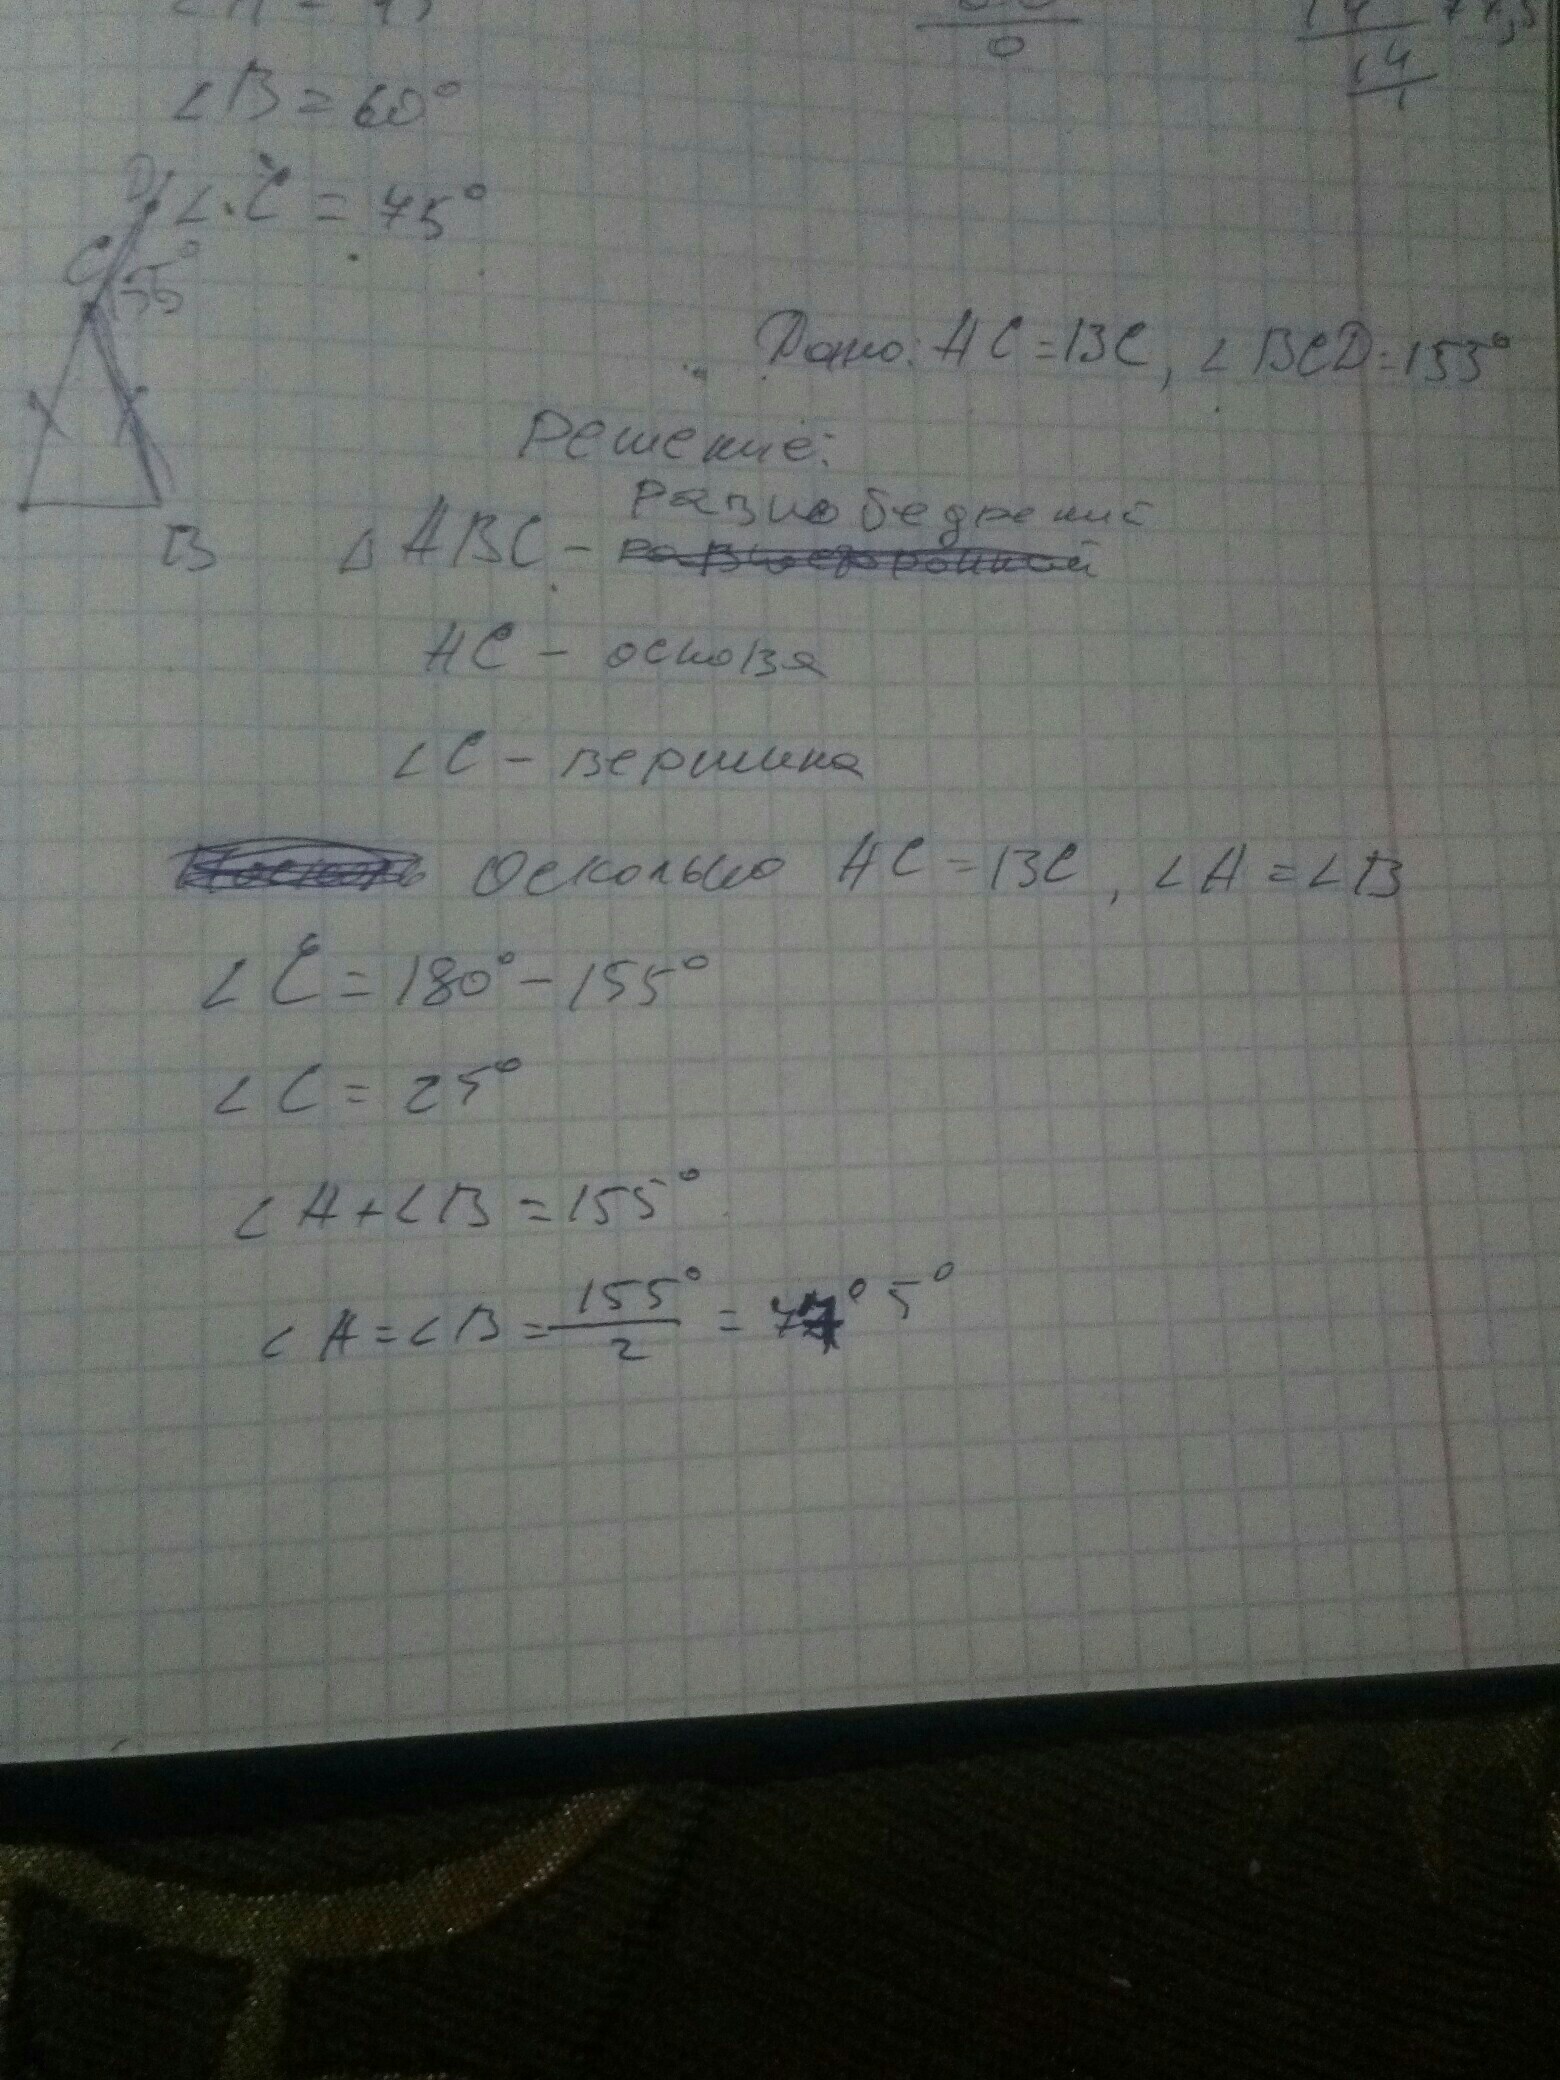 ∠B = 60°
∠C = 75°
D
C
155°
B
Дано: AC = BC, ∠BCD = 155°
Решение:
Разнобедрений
△ ABC -
AC - основа
∠C - вершина
Осколько AC = BC, ∠A = ∠B
∠C = 180° - 155°
∠C = 25°
∠A + ∠B = 155°
∠A = ∠B = 155°/2 = 77° 5°